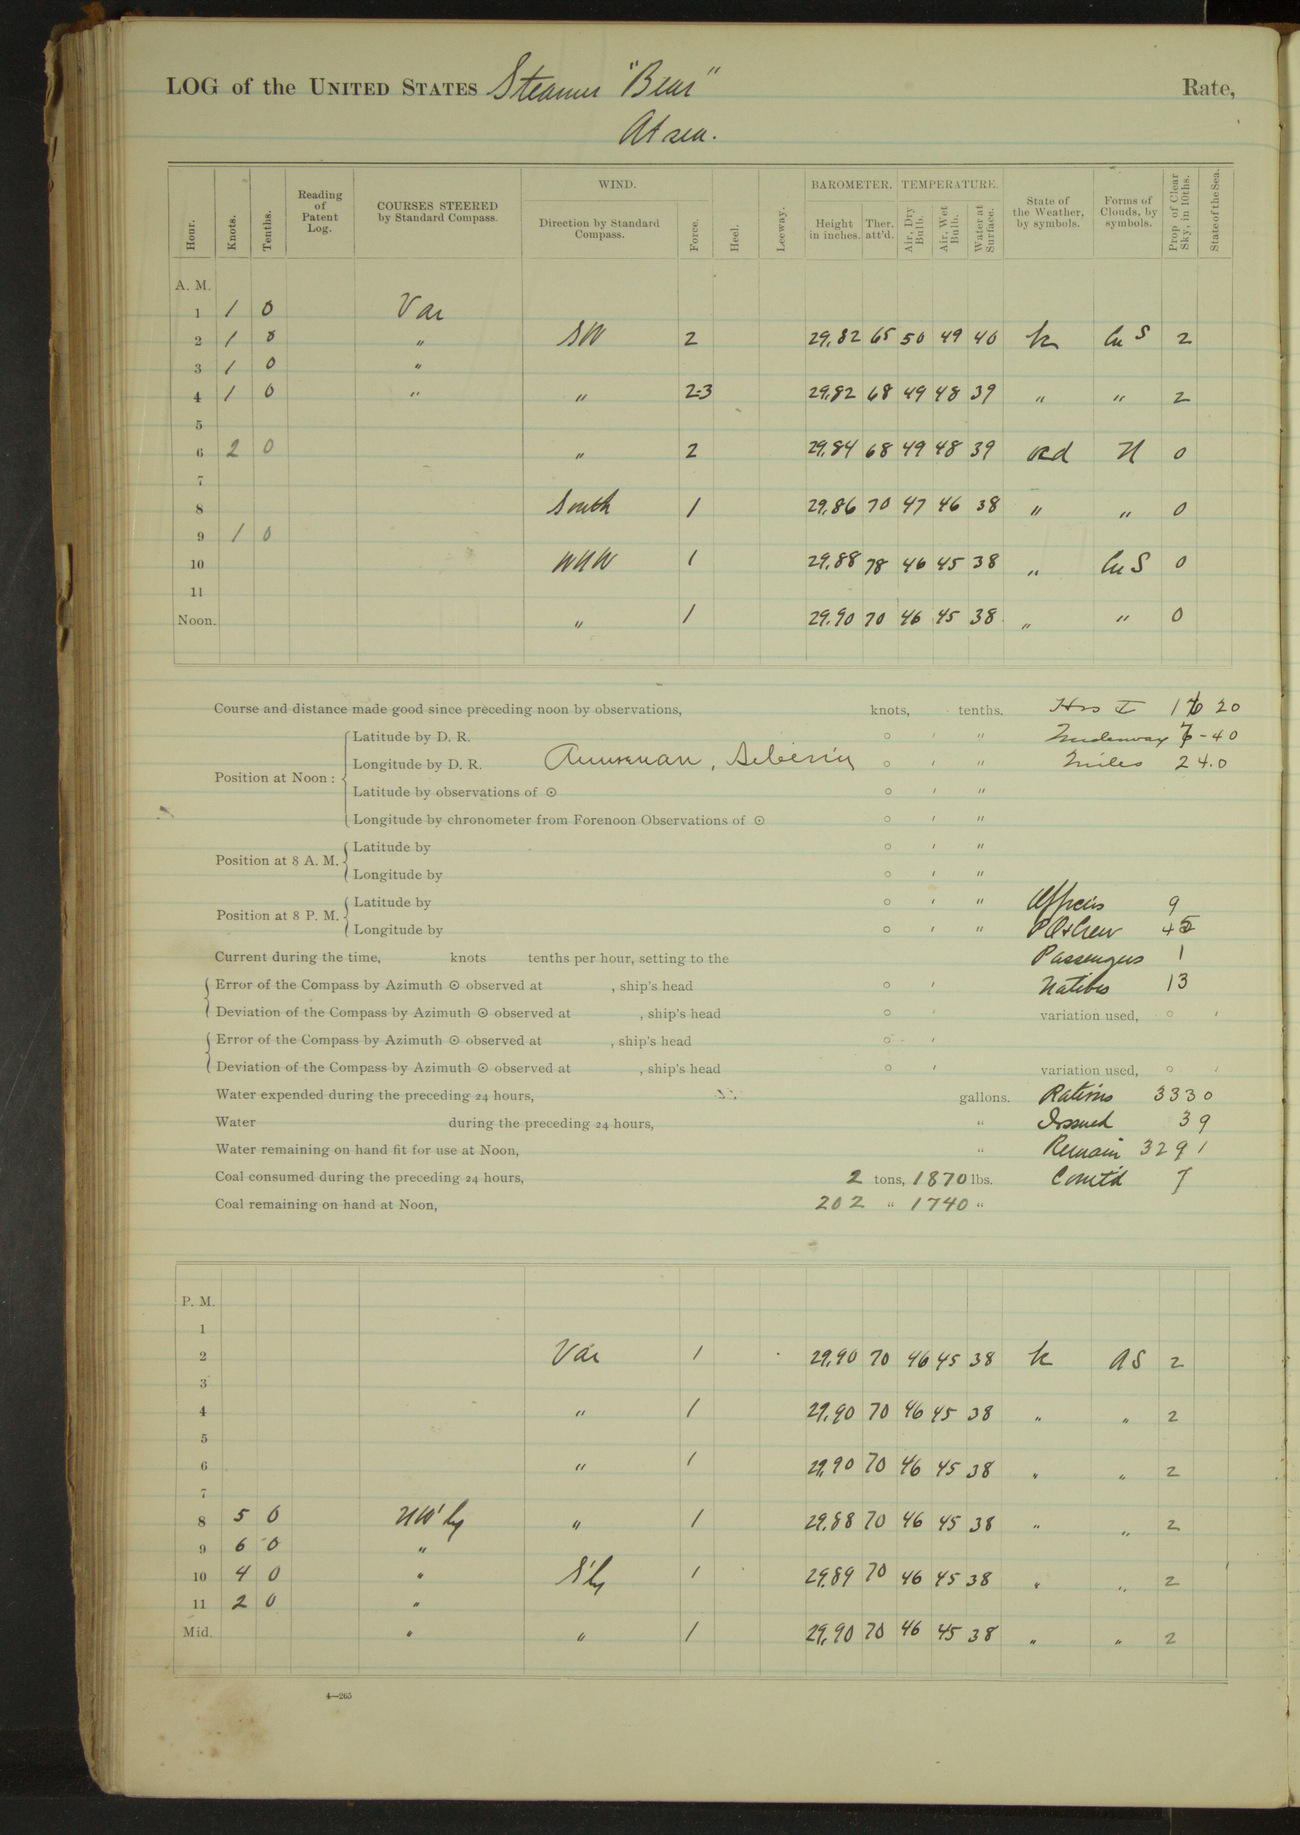 LOG of the UNITED STATES Steamer "Bear" Rate,
At sea.
Hour. Knots. Tenths. Reading of Patent Log. COURSES STEERED by Standard Compass. WIND. Direction by Standard Compass. Force. Heel. Leeway. BAROMETER. Height in inches. Ther. att'd. TEMPERATURE. Air, Dry Bulb. Air, Wet Bulb. Water at Surface. State of the Weather, by symbols. Forms of Clouds, by symbols. Prop. of Clear Sky, in 10ths. State of the Sea.
A. M.
1 1 0 Var
2 1 0 " SW 2 29.82 65 50 49 40 Cu S 2
3 1 0 "
4 1 0 " " 2-3 29.82 68 49 48 39 " " 2
5
6 2 0 " 2 29.84 68 49 48 39 N 0
7
8 South 1 29.86 70 47 46 38 " " 0
9 1 0
10 WNW 1 29.88 78 46 45 38 " Cu S 0
11
Noon. " 1 29.90 70 46 45 38 " " 0
Course and distance made good since preceding noon by observations, knots, tenths. Hrs 20
Position at Noon: Latitude by D. R. ° ' " Underway -40
Longitude by D. R. Siberia ° ' " Miles 24.0
Latitude by observations of ☉ ° ' "
Longitude by chronometer from Forenoon Observations of ☉ ° ' "
Position at 8 A. M. Latitude by ° ' "
Longitude by ° ' "
Position at 8 P. M. Latitude by ° ' " Officers 9
Longitude by ° ' " Crew 45
Current during the time, knots tenths per hour, setting to the Passengers 1
Error of the Compass by Azimuth ☉ observed at , ship's head ° ' Natives 13
Deviation of the Compass by Azimuth ☉ observed at , ship's head ° ' variation used, ° '
Error of the Compass by Azimuth ☉ observed at , ship's head ° '
Deviation of the Compass by Azimuth ☉ observed at , ship's head ° ' variation used, ° '
Water expended during the preceding 24 hours, gallons. Rations 3330
Water during the preceding 24 hours, " Issued 39
Water remaining on hand fit for use at Noon, " Remain 3291
Coal consumed during the preceding 24 hours, 2 tons, 1870 lbs. Com'td 7
Coal remaining on hand at Noon, 202 " 1740 "
P. M.
1
2 Var 1 29.90 70 46 45 38 AS 2
3
4 " 1 29.90 70 46 45 38 " " 2
5
6 " 1 29.90 70 46 45 38 " " 2
7
8 5 0 NW'ly " 1 29.88 70 46 45 38 " " 2
9 6 0 "
10 4 0 " S'ly 1 29.89 70 46 45 38 " " 2
11 2 0 "
Mid. " " 1 29.90 70 46 45 38 " " 2
4—265